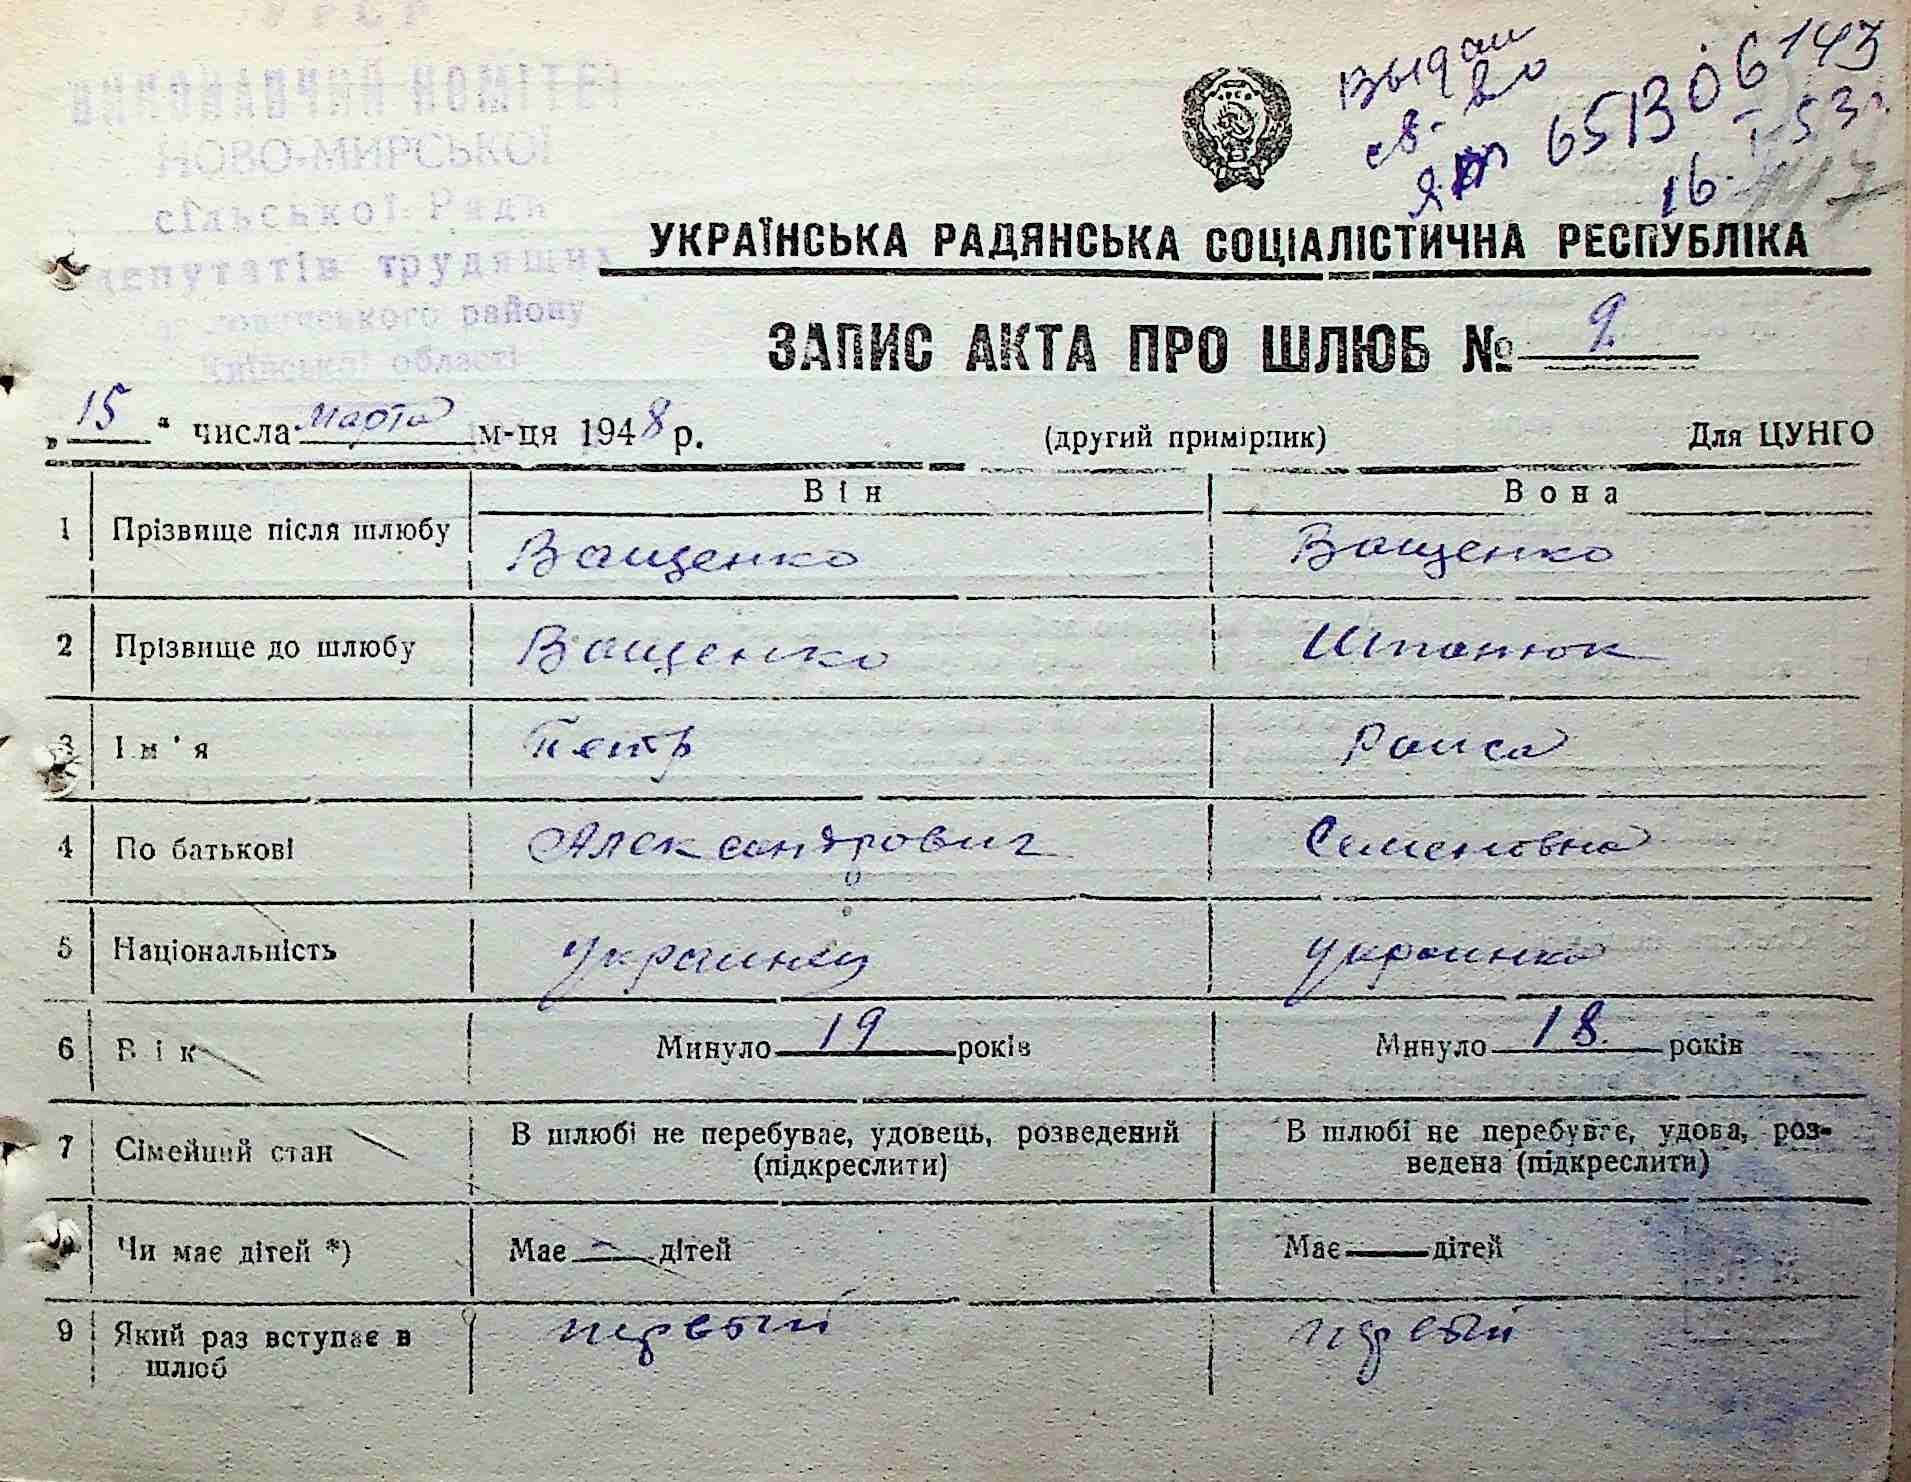 УРСР
ВИКОНАВЧИЙ КОМІТЕТ
НОВО-МИРСЬКОЇ
сільської Ради
депутатів трудящих
району
Київської області
Выдан
св-во
651306
16. I-53 г.
143
147
УКРАЇНСЬКА РАДЯНСЬКА СОЦІАЛІСТИЧНА РЕСПУБЛІКА
ЗАПИС АКТА ПРО ШЛЮБ № 9
„15“ числа марта м-ця 1948 р. (другий примірник) Для ЦУНГО
Він Вона
1 Прізвище після шлюбу Ващенко Ващенко
2 Прізвище до шлюбу Ващенко Шпанюк
3 Ім'я Петр Раиса
4 По батькові Александрович Семеновна
5 Національність украинец украинка
6 Вік Минуло 19 років Минуло 18. років
7 Сімейний стан В шлюбі не перебуває, удовець, розведений В шлюбі не перебуває, удова, роз-
(підкреслити) ведена (підкреслити)
Чи має дітей *) Має — дітей Має дітей
9 Який раз вступає в первый первый
шлюб